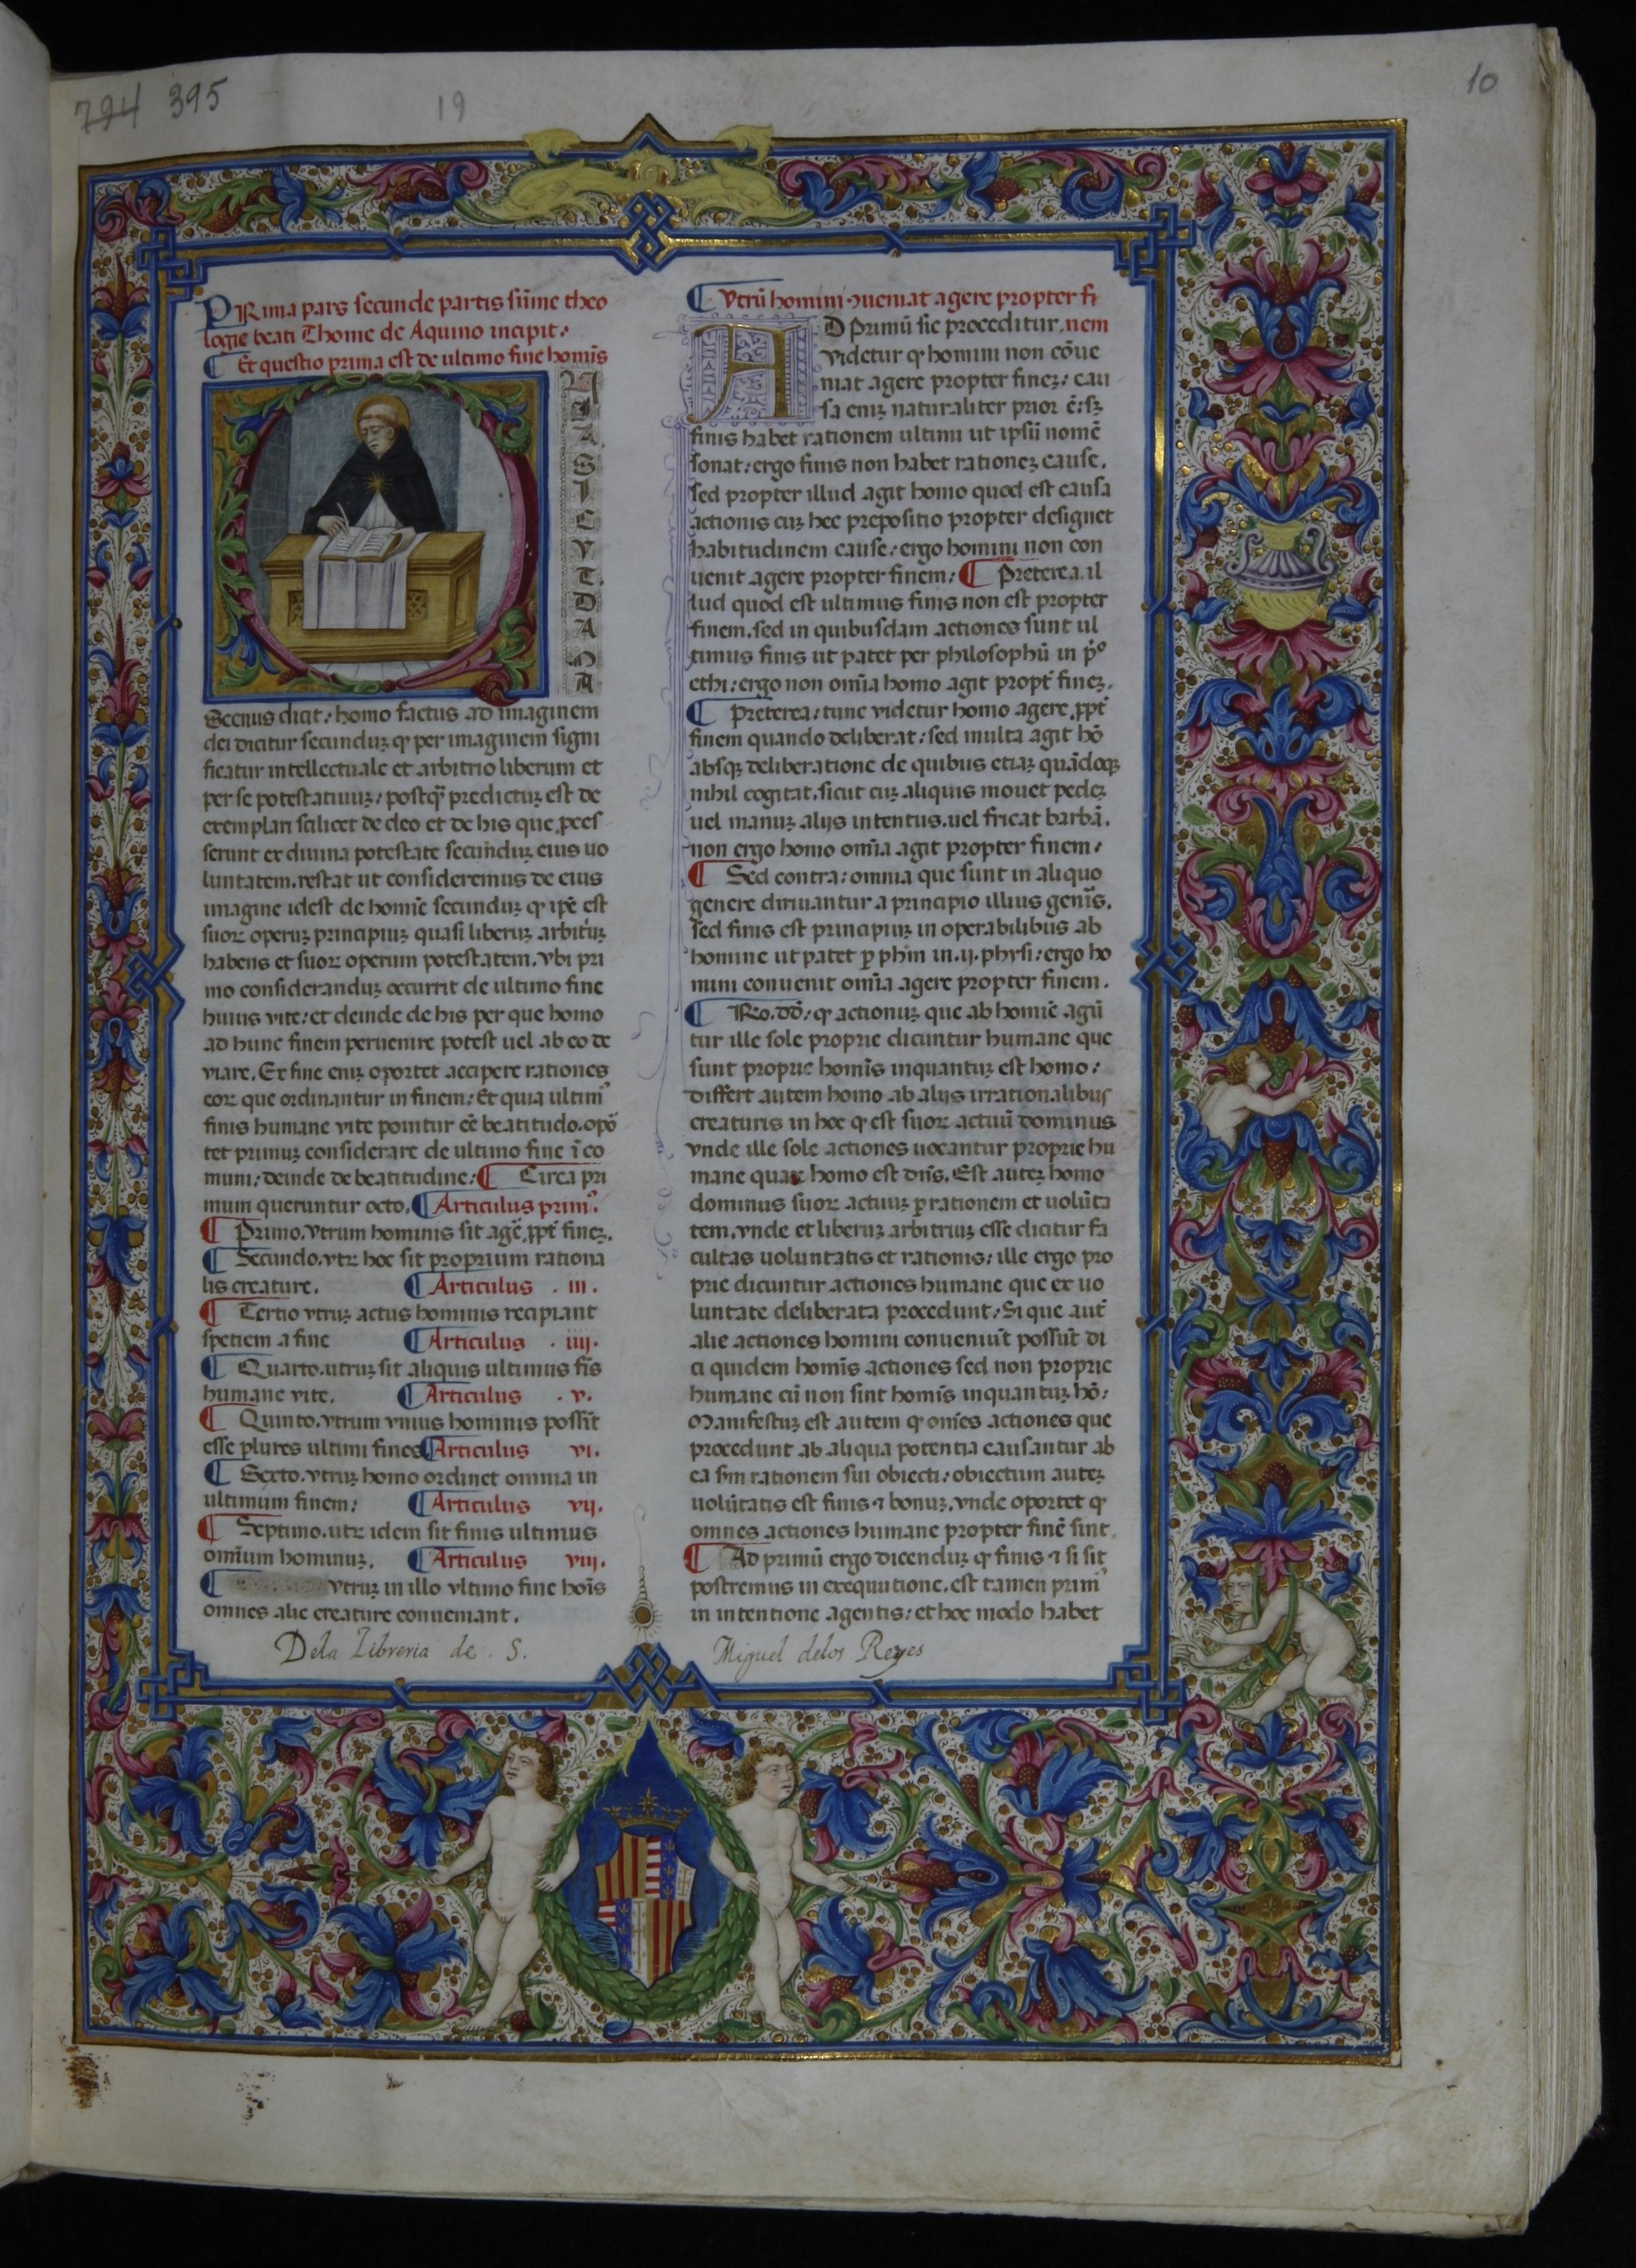 794 395
19
10
PRima pars secunde partis sūme theo
logie beati Thome de Aquino incipit.
¶ Et questio prima est de ultimo fine homīs
QUIA SICVT DAMA
scenus dicit: homo factus ad imaginem
dei dicitur secunduꝫ ꝙ per imaginem signi
ficatur intellectuale et arbitrio liberum et
per se potestatiuuꝫ: postqꝫ̄ predictuꝫ est de
exemplari scilicet de deo et de his que ꝓces
serunt ex diuina potestate secunduꝫ eius uo
luntatem. restat ut consideremus de eius
imagine idest de homīe secunduꝫ ꝙ ip̄e est
suoꝝ operuꝫ principiuꝫ quasi liberuꝫ arbitriuꝫ
habens et suoꝝ operum potestatem. vbi pri
mo consideranduꝫ occurrit de ultimo fine
huius vite: et deinde de his per que homo
ad hunc finem peruenire potest uel ab eo de
viare. Ex fine eniꝫ oportet accipere rationes
eoꝝ que ordinantur in finem: Et quia ultim᾽
finis humane vite ponitur eē beatitudo. opo᷒
tet primuꝫ considerare de ultimo fine ī co
muni: deinde de beatitudine: ¶ Circa pri
mum queruntur octo. ¶ Articulus prim᾽.
¶ Primo. vtrum hominis sit agē. ꝓpt̄ fineꝫ.
¶ Secundo. vtꝝ hoc sit proprium rationa
lis creature. ¶ Articulus . iii .
¶ Tertio vtruꝫ actus hominis recipiant
spetiem a fine ¶ Articulus . iiij.
¶ Quarto. utruꝫ sit aliquis ultimus fīs
humane vite. ¶ Articulus . v.
¶ Quinto. vtrum vnius hominis possīt
esse plures ultimi fines ¶ Articulus vi.
¶ Sexto. vtruꝫ homo ordinet omnia in
ultimum finem: ¶ Articulus vij.
¶ Septimo. utꝝ idem sit finis ultimus
omīum hominuꝫ. ¶ Articulus viij.
¶ vtruꝫ in illo vltimo fine hoīs
omnes alie creature conueniant.
¶ Vtrū homini ꝯueniat agere propter fi
AD primū sic proceditur. nem
videtur ꝙ homini non cōue
niat agere propter fineꝫ: cau
sa eniꝫ naturaliter prior ē: sꝫ
finis habet rationem ultimi ut ipsū nomē
sonat: ergo finis non habet rationeꝫ cause.
sed propter illud agit homo quod est causa
actionis cuꝫ hec prepositio propter designet
habitudinem cause: ergo homini non con
uenit agere propter finem: ¶ Preterea. il
lud quod est ultimus finis non est propter
finem. sed in quibusdam actiones sunt ul
timus finis ut patet per philosophū in p̄º
ethi: ergo non omīa homo agit propt̄ fineꝫ.
¶ Preterea: tunc videtur homo agere ꝓpt̄
finem quando deliberat: sed multa agit hō
absqꝫ deliberatione de quibus etiaꝫ quādoqꝫ
nihil cogitat. sicut cuꝫ aliquis mouet pedeꝫ
uel manuꝫ alijs intentus. uel fricat barbā.
non ergo homo omīa agit propter finem:
¶ Sed contra: omnia que sunt in aliquo
genere diriuantur a principio illius genīs.
sed finis est principiuꝫ in operabilibus ab
homine ut patet ꝑ phīm in. ij. phisi: ergo ho
mini conuenit omīa agere propter finem.
¶ Ro. dd̄: ꝙ actionuꝫ que ab homīe agū
tur ille sole proprie dicuntur humane que
sunt proprie homīs inquantuꝫ est homo:
differt autem homo ab alijs irrationalibus
creaturis in hoc ꝙ est suoꝝ actuū dominus
vnde ille sole actiones uocantur proprie hu
mane quaꝝ homo est dn̄s. Est auteꝫ homo
dominus suoꝝ actuuꝫ ꝑ rationem et uolūta
tem. vnde et liberuꝫ arbitriuꝫ esse dicitur fa
cultas uoluntatis et rationis: ille ergo pro
prie dicuntur actiones humane que ex uo
luntate deliberata procedunt: Si que aut̄
alie actiones homini conueniūt possūt di
ci quidem homīs actiones sed non proprie
humane cū non sint homīs inquantuꝫ hō:
Manifestuꝫ est autem ꝙ omēs actiones que
procedunt ab aliqua potentia causantur ab
ea sm̄ rationem sui obiecti: obiectum auteꝫ
uolūtatis est finis ⁊ bonuꝫ. vnde oportet ꝙ
omnes actiones humane propter finē sint.
¶ Ad primū ergo dicenduꝫ ꝙ finis ⁊ si sit
postremus in exequutione. est tamen prim᾽
in intentione agentis: et hoc modo habet
Dela Libreria de . S. Miguel delos Reyes